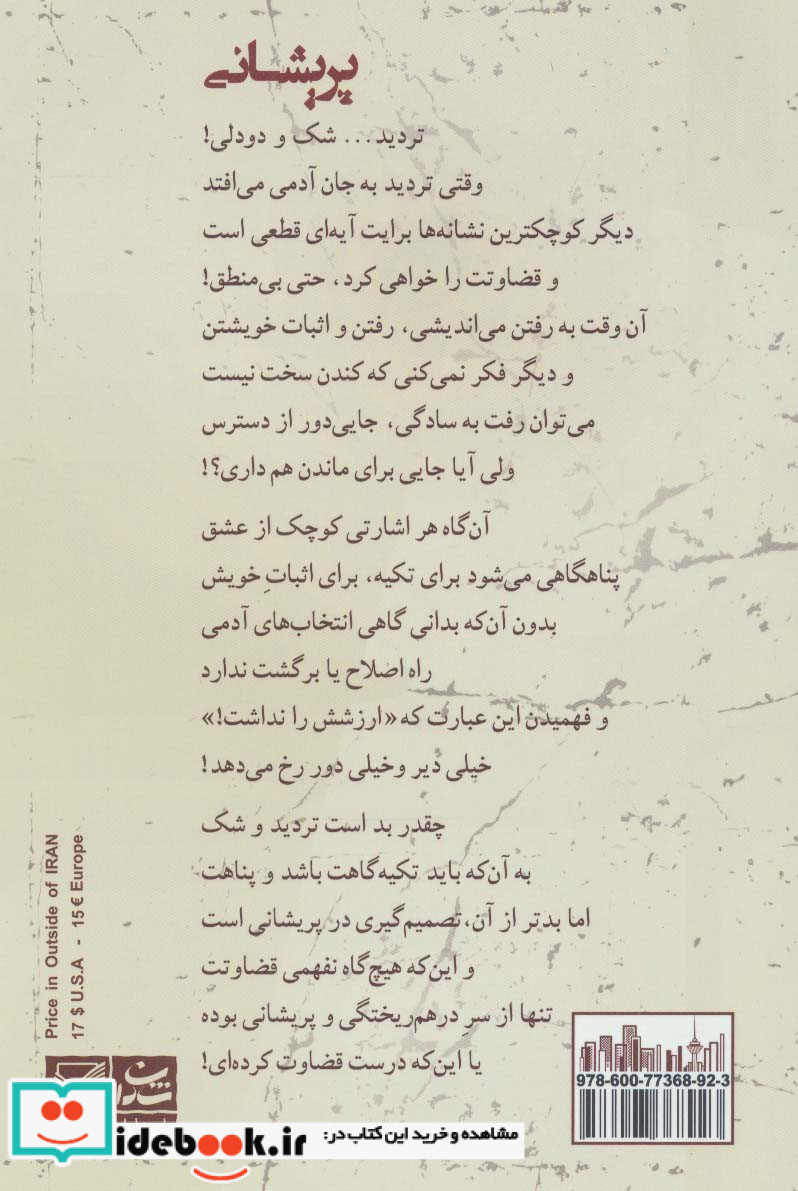 پریشانی
تردید... شک و دودلی!
وقتی تردید به جان آدمی می‌افتد
دیگر کوچکترین نشانه‌ها برایت آیه‌ای قطعی است
و قضاوتت را خواهی کرد، حتی بی‌منطق!
آن وقت به رفتن می‌اندیشی، رفتن و اثبات خویشتن
و دیگر فکر نمی‌کنی که کندن سخت نیست
می‌توان رفت به سادگی، جایی‌دور از دسترس
ولی آیا جایی برای ماندن هم داری؟!
آن‌گاه هر اشارتی کوچک از عشق
پناهگاهی می‌شود برای تکیه، برای اثباتِ خویش
بدون آن‌که بدانی گاهی انتخاب‌های آدمی
راه اصلاح یا برگشت ندارد
و فهمیدن این عبارت که «ارزشش را نداشت!»
خیلی دیر وخیلی دور رخ می‌دهد!
چقدر بد است تردید و شک
به آن‌که باید تکیه‌گاهت باشد و پناهت
اما بدتر از آن، تصمیم‌گیری در پریشانی است
و این‌که هیچ‌گاه نفهمی قضاوتت
تنها از سرِ درهم‌ریختگی و پریشانی بوده
یا این‌که درست قضاوت کرده‌ای!
Price in Outside of IRAN
17 $ U.S.A - 15 € Europe
978-600-77368-92-3
مشاهده و خرید این کتاب در:
idebook.ir